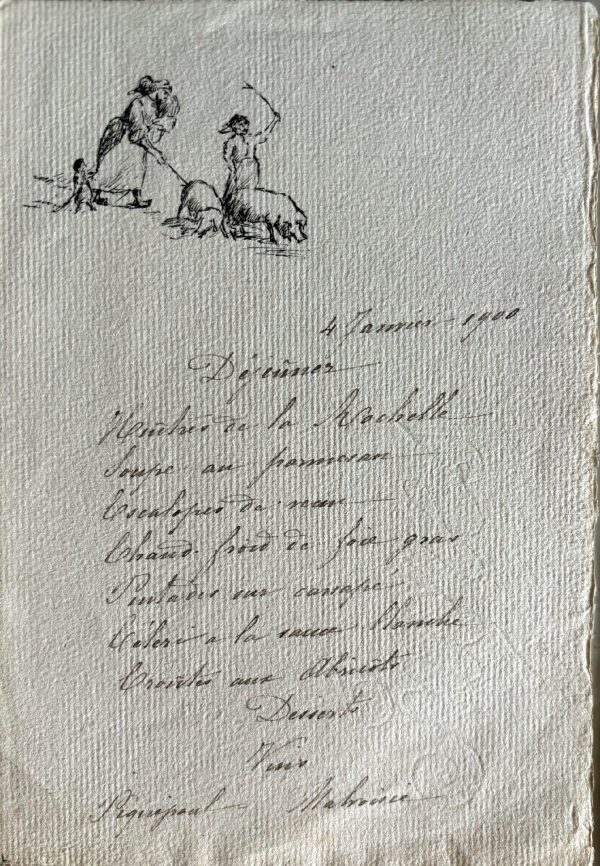 4 Janvier 1900
Déjeûner
Huîtres de la Rochelle
Soupe au parmesan
Escalopes de veau
Chaud-froid de foie gras
Pintades sur canapé
Céleri à la sauce blanche
Croûtes aux Abricots
Desserts
Vins
Malvoisie